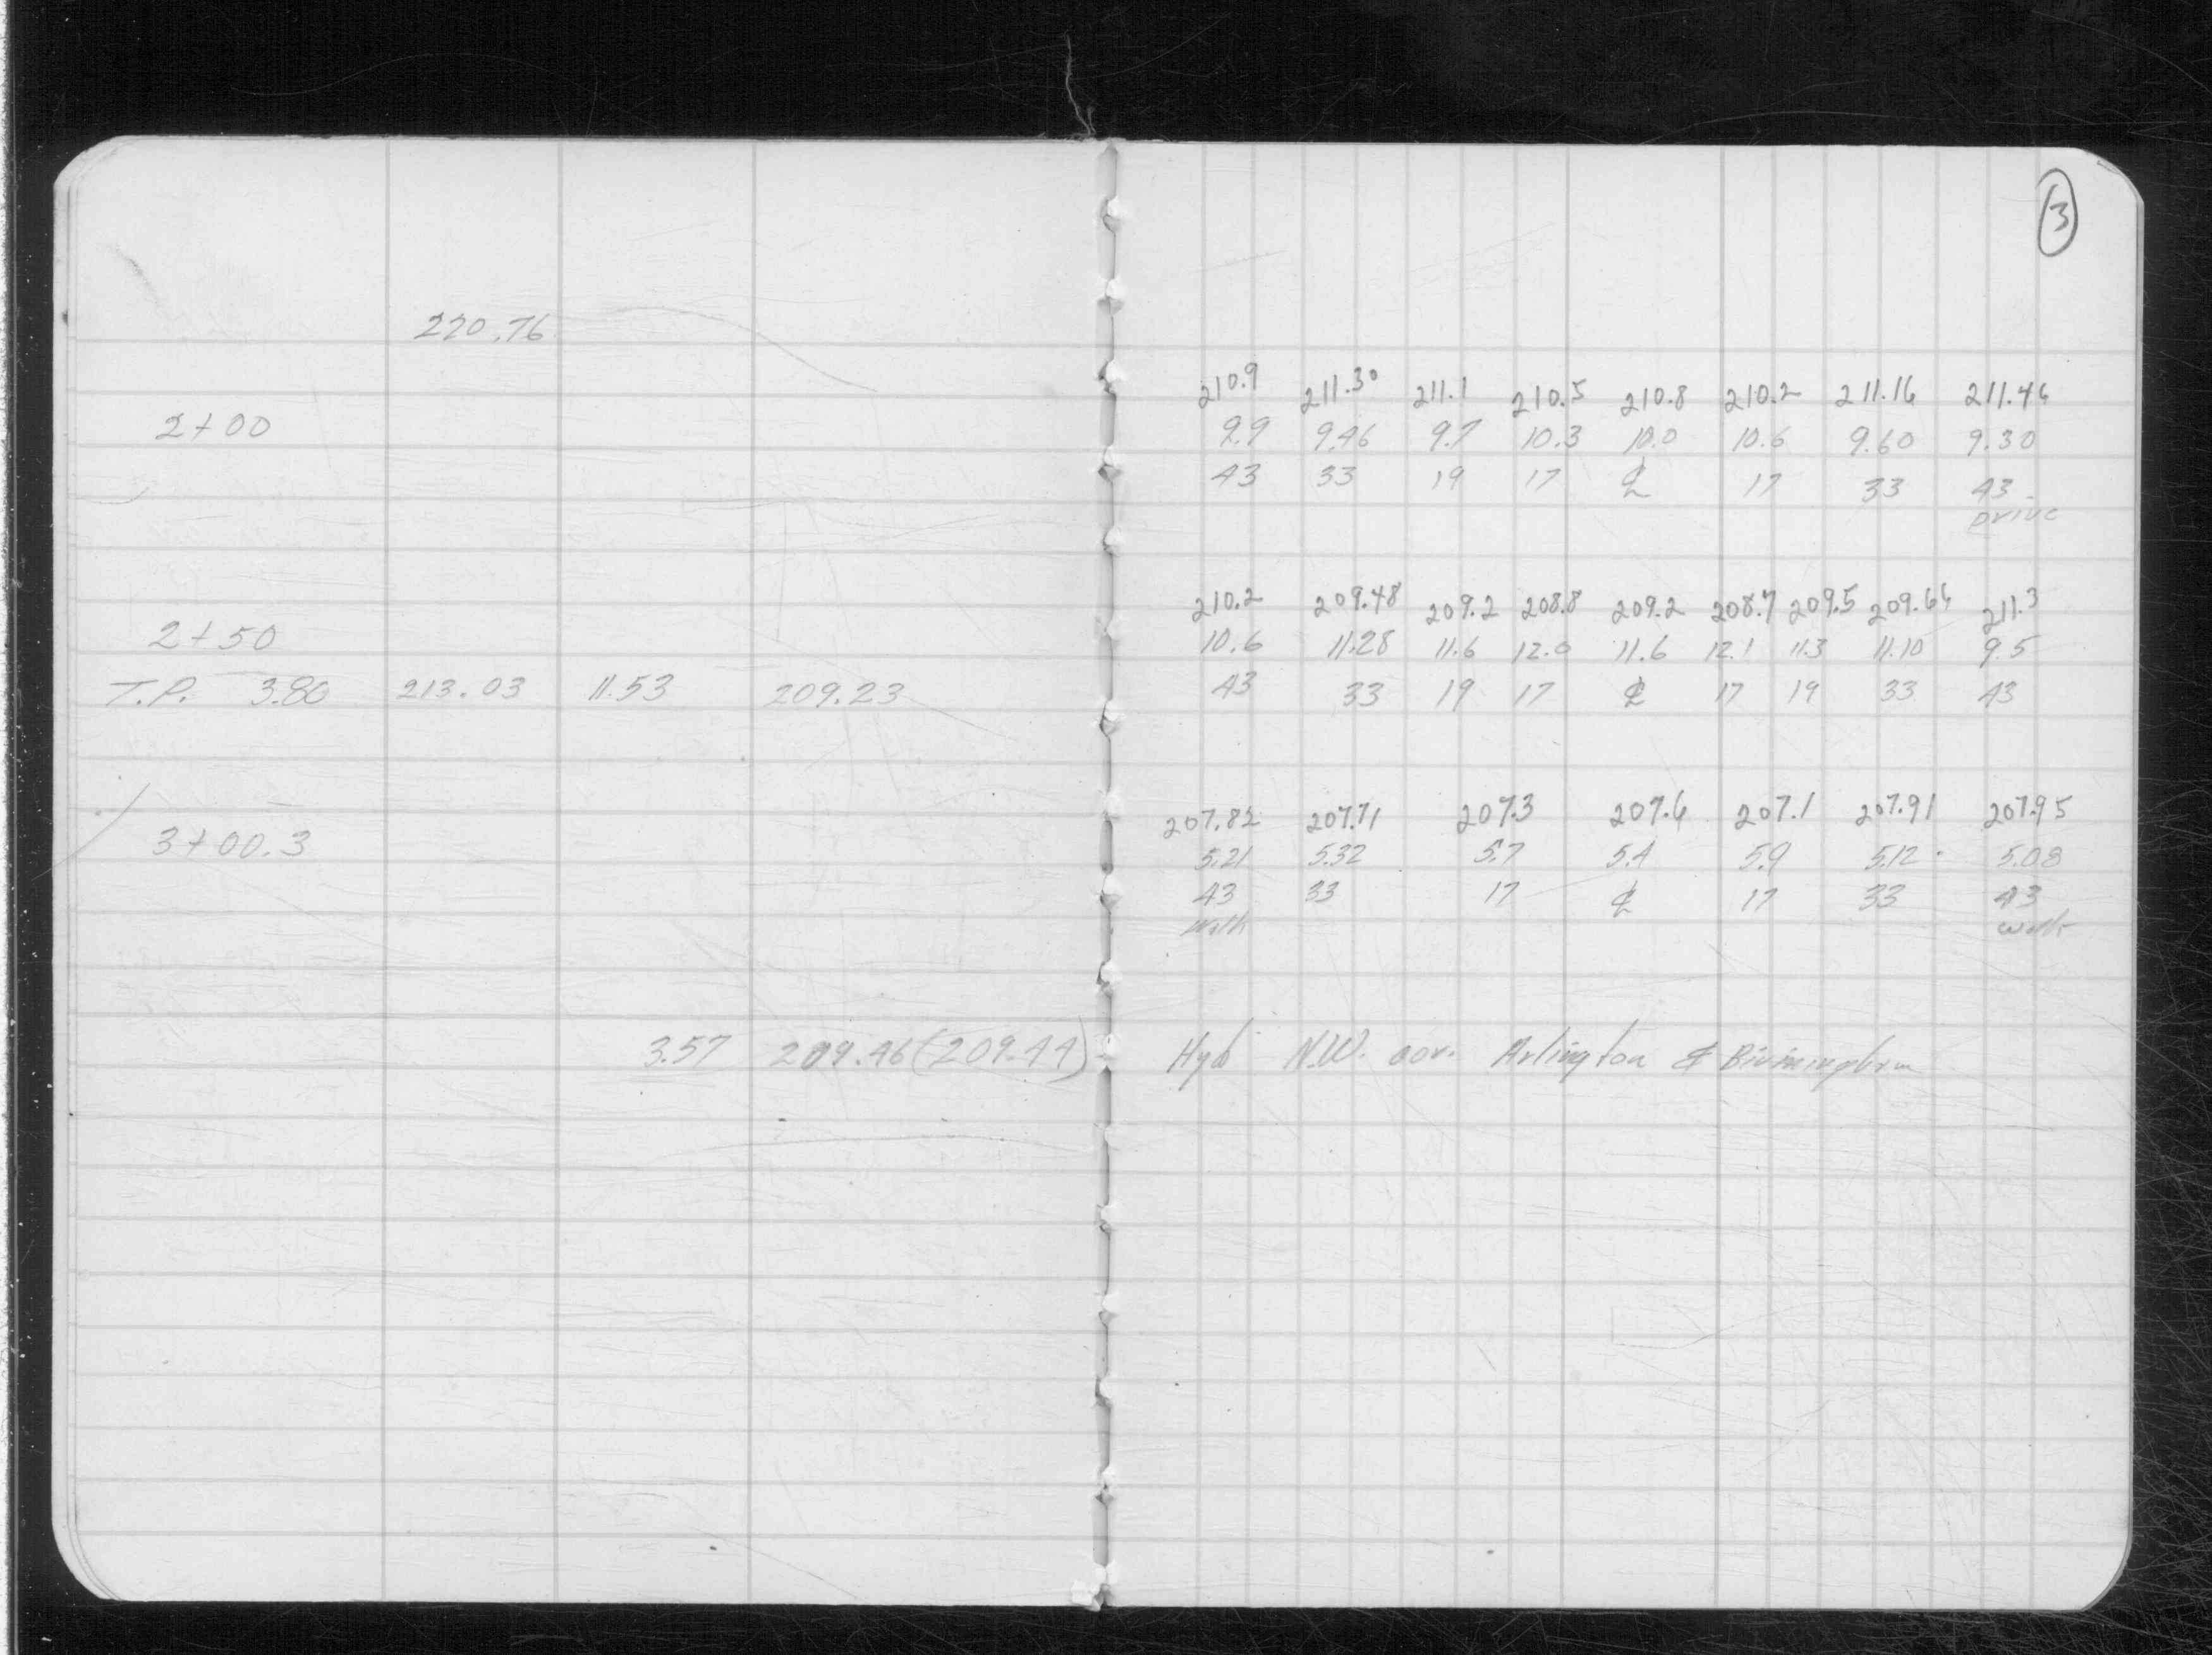 3
220.76
210.9 211.30 211.1 210.5 210.8 210.2 211.16 211.46
2+00 9.9 9.46 9.7 10.3 10.0 10.6 9.60 9.30
43 33 19 17 ℄ 17 33 43
Drive
210.2 209.48 209.2 208.8 209.2 208.7 209.5 209.66 211.3
2+50 10.6 11.28 11.6 12.0 11.6 12.1 11.3 11.10 9.5
T.P. 3.80 213.03 11.53 209.23 43 33 19 17 ℄ 17 19 33 43
207.82 207.71 207.3 207.6 207.1 207.91 207.95
3+00.3 5.21 5.32 5.7 5.4 5.9 5.12 5.08
43 33 17 ℄ 17 33 43
walk walk
3.57 209.46 (209.44) Hyd N.W. cor. Arlington & Birmingham